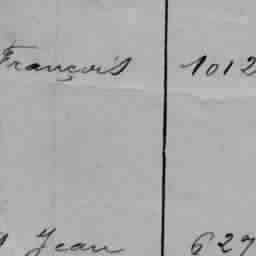 François 1012
Jean 627